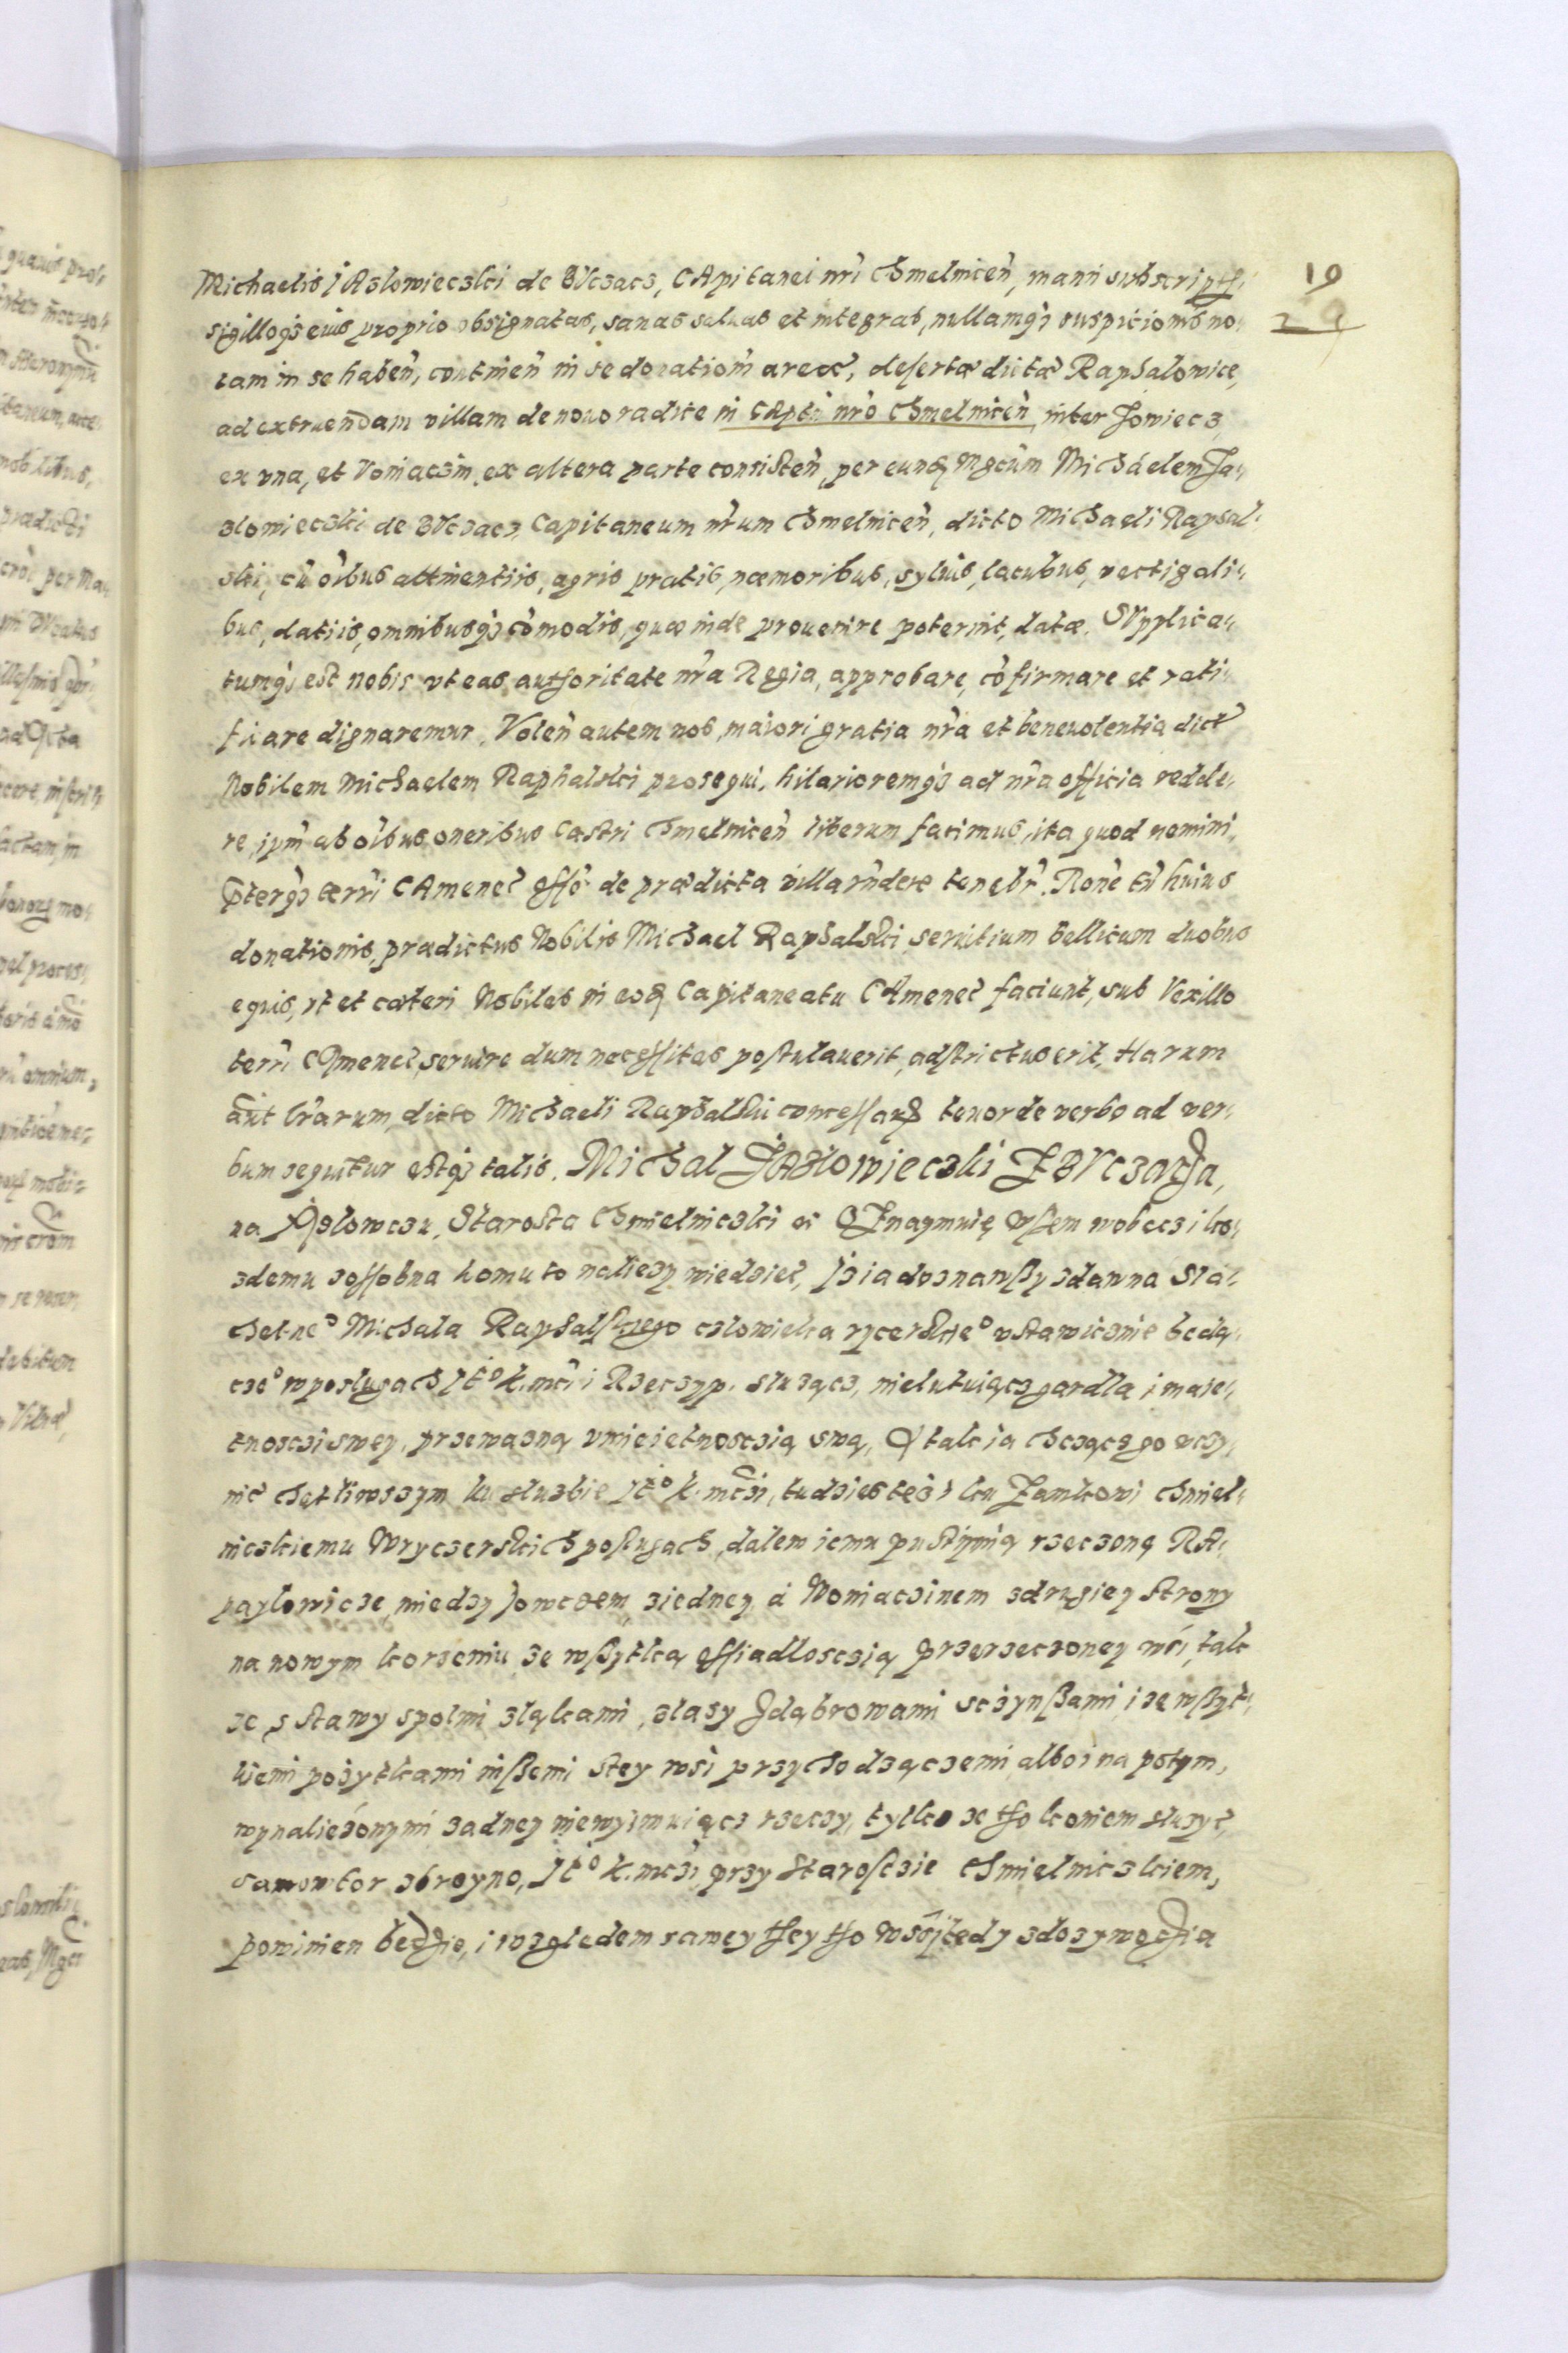 19
29
Michaelis JAzlowieczki de BUczacz, CApitanei nr̃i Chmelnicen̄, manu subscriptas
sigilloq̃ eius proprio obsignatas, sanas saluas et integras, nullamq̃ suspicionis no,
tam in se haben̄, continen̄ in se donationẽ areæ, desertæ dictæ Raphalowice,
ad extruendam villam de nouo radice in CAptũ nr̃o Chmelnicen̄ inter Jowiecz,
ex vna, et Voniaczin ex altera parte consisten̄, per eund Mgcũm Michaelem Ja,
zlowieczki de BUczacz, Capitaneum nr̃um Chmelnicen̄, dicto Michaeli Raphal,
ski, cũ oĩbus attinentiis, agris pratis, næmoribus, syluis, lacubus, vectigali,
bus, datiis, omnibusq̃ cõmodis, quæ inde prouenire poterint, datæ. SUpplica,
tumq̃ est nobis vt eas authoritate nr̃a Regia, approbare, cõfirmare et rati,
ficare dignaremur. Volen̄ autem nos, maiori gratia nr̃a et beneuolentia dict
Nobilem Michaelem Raphalski prosequi, hilarioremq̃ ad nr̃a officia redde,
re, ipm̃ ab oĩbus oneribus Castri Chmelnicen̄ liberum facimus, ita quod nemini
terr̃i CAmenec̃ de prædicta villa rñdere tenebr̃. Rone tñ huius
donationis, prædictus Nobilis Michael Raphalski, seruitium bellicum duobus
equis, vt et cæteri Nobiles in eod Capitaneatu CAmenec̃ faciunt, sub Vexillo
terr̃i CAmenec̃, seruire dum necessitas postulauerit, adstrictus erit. Harum
aũt lr̃arum, dicto Michaeli Raphalski concessarũ tenor de verbo ad ver,
bum sequitur estq̃ talis. Michal JAzlowieczki Z BUczacza,
na JAzlowczu, Starosta Chmielniczki ec̃ OZnaymuię wssem wobecz i ka,
zdemu zossobna komu to naliezy wiedziec̃, Jz ia doznawssy zdawna Sla,
chetneº Michala Raphalskiego czlowieka rycerskieº vstawicznie będą,
czeº w poslugach Jeº K. mci i Rzeczyp. sluzącz, nielutuiącz gardla i maie,
tnosczi swey, przewazną vmieiętnosczią swą, A tak ia chcącz go vczy,
nic̃ chętliwszym ku sluzbie Jeº K. mczi, tudzies tez i ku Zamkowi Chmiel,
niczkiemu W ryczerskich poslugach, dalem iemu pustynią rzeczoną RA,
paylowicze, miedzy Jowczem ziedney, a Woniaczinem zdrugiey strony
na nowym korzeniu ze wssytką ossiadlosczią przerzeczoney wsi, tak
ze s stawy spolmi złąkami, zlasy zdąbrowami sczynssami i ze wssyt,
kiemi pozytkami inssemi stey wsi przychodzączemi, albo i na potym,
wynaliezionymi zadney niewyimuiącz rzeczy, tylko ze tho koniem sluzyc̃,
samowtor zbroyno, Jeº K. mczi, przy Starosczie Chmielniczkiem,
powinien będzie, i wzgledem samey they tho wsi, tedy zdozywocia